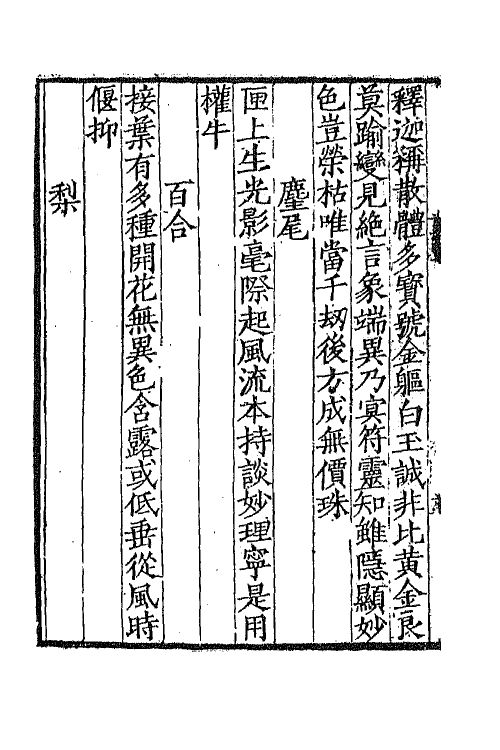 釋迦稱散體多寶號金軀白玉誠非比黃金良
莫踰變見絕言象端異乃㝠符靈知雖隱顯妙
色豈榮枯唯當千刼後方成無價珠
麈尾
匣上生光影毫際起風流本持談妙理寧是用
權牛
百合
接葉有多種開花無異色含露或低垂從風時
偃抑
梨